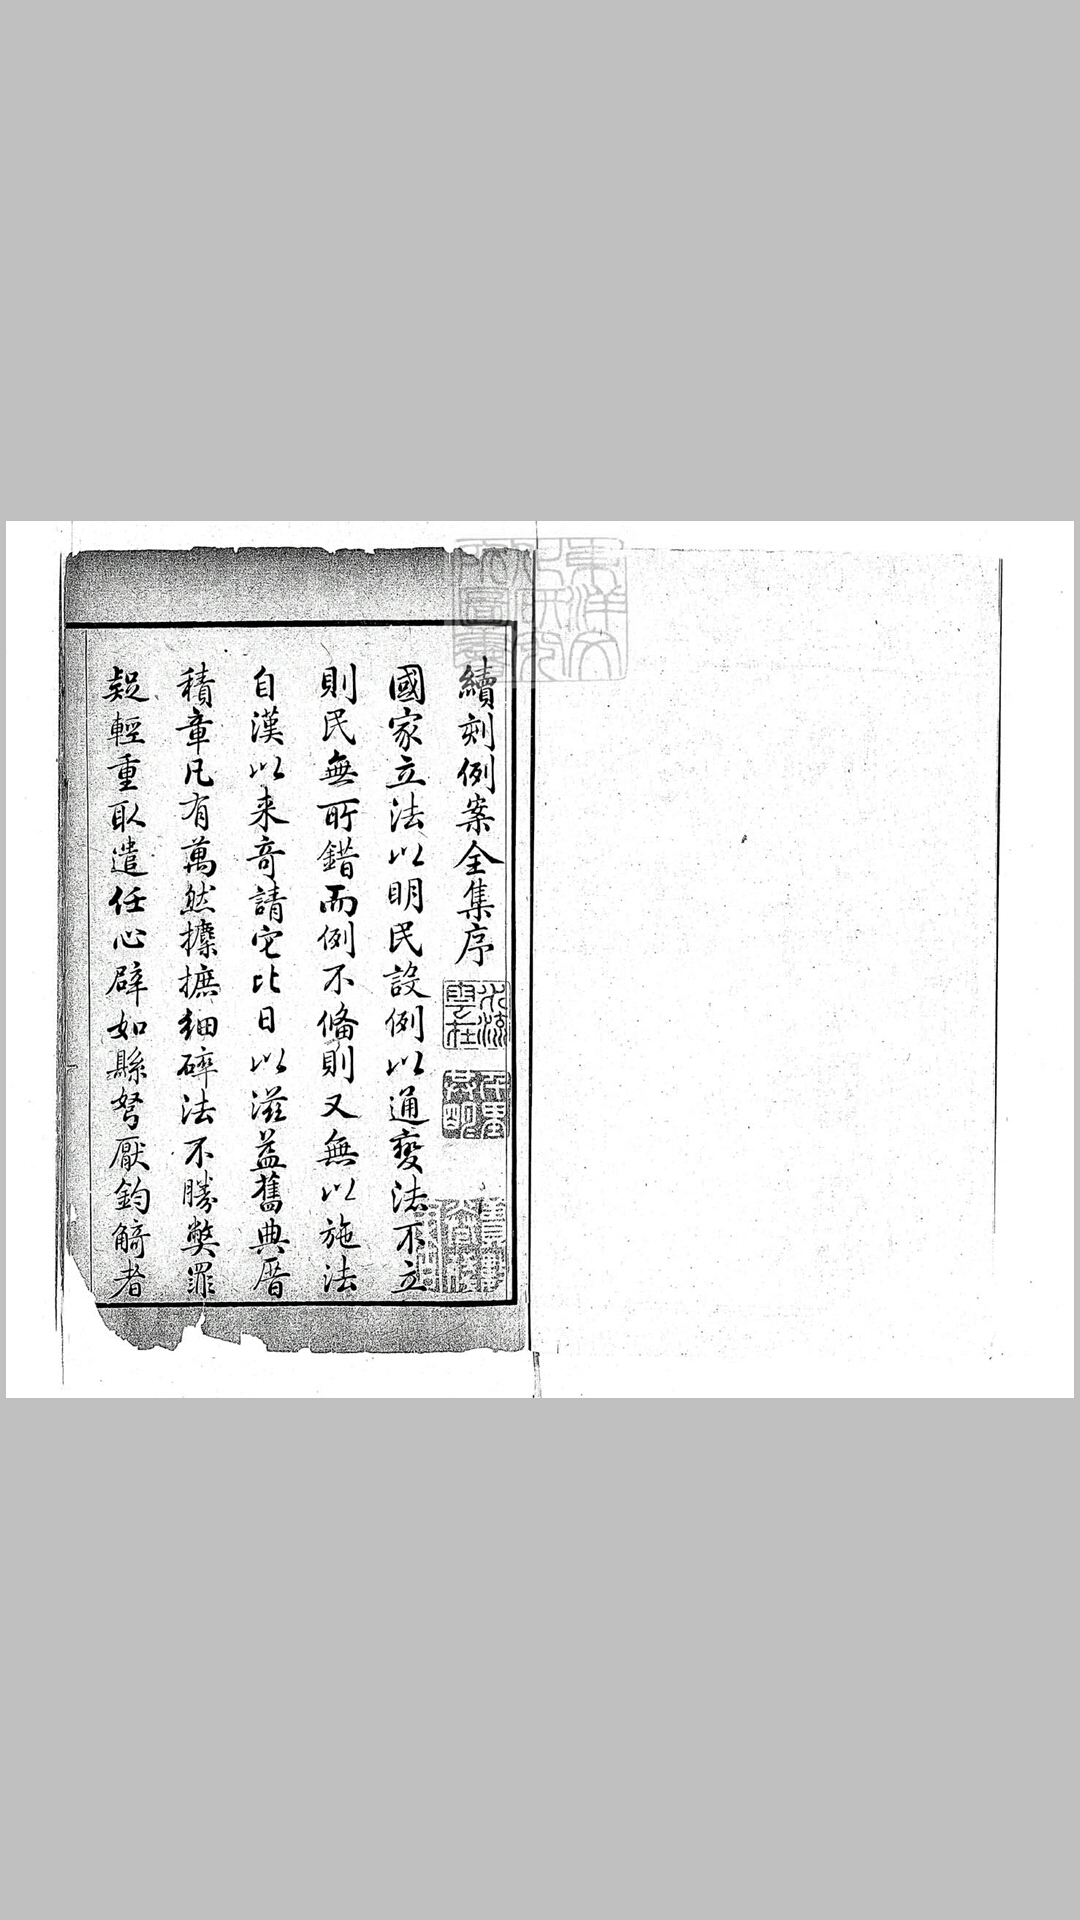 續刻例案全集序
國家立法以明民設例以通變法不立
則民無所錯而例不俻則又無以施法
自漢以来竒請它比日以滋益舊典厝
積章凡有萬然攈摭細碎法不勝獘罪
疑輕重㪅遣任心辟如縣弩厭鈞觭者